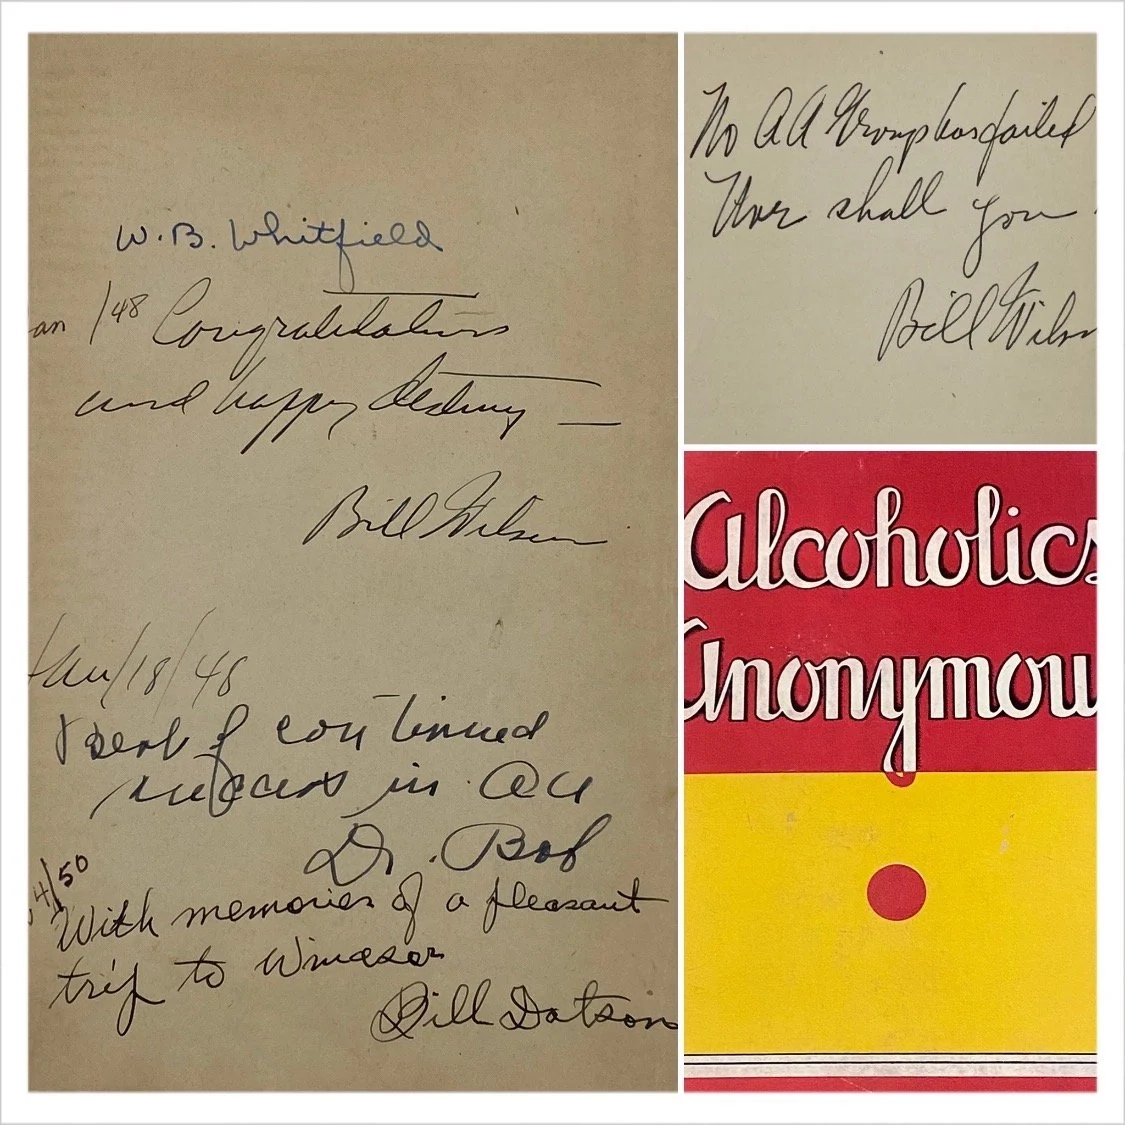 W. B. Whitfield
an /48 Congratulations
and happy destiny —
Bill Wilson
Jan/18/48
Best of continued
success in AA
Dr. Bob
4/50
With memories of a pleasant
trip to Windsor
Bill Dotson
No AA Group has failed
Nor shall you.
Bill Wilson
Alcoholics
Anonymou